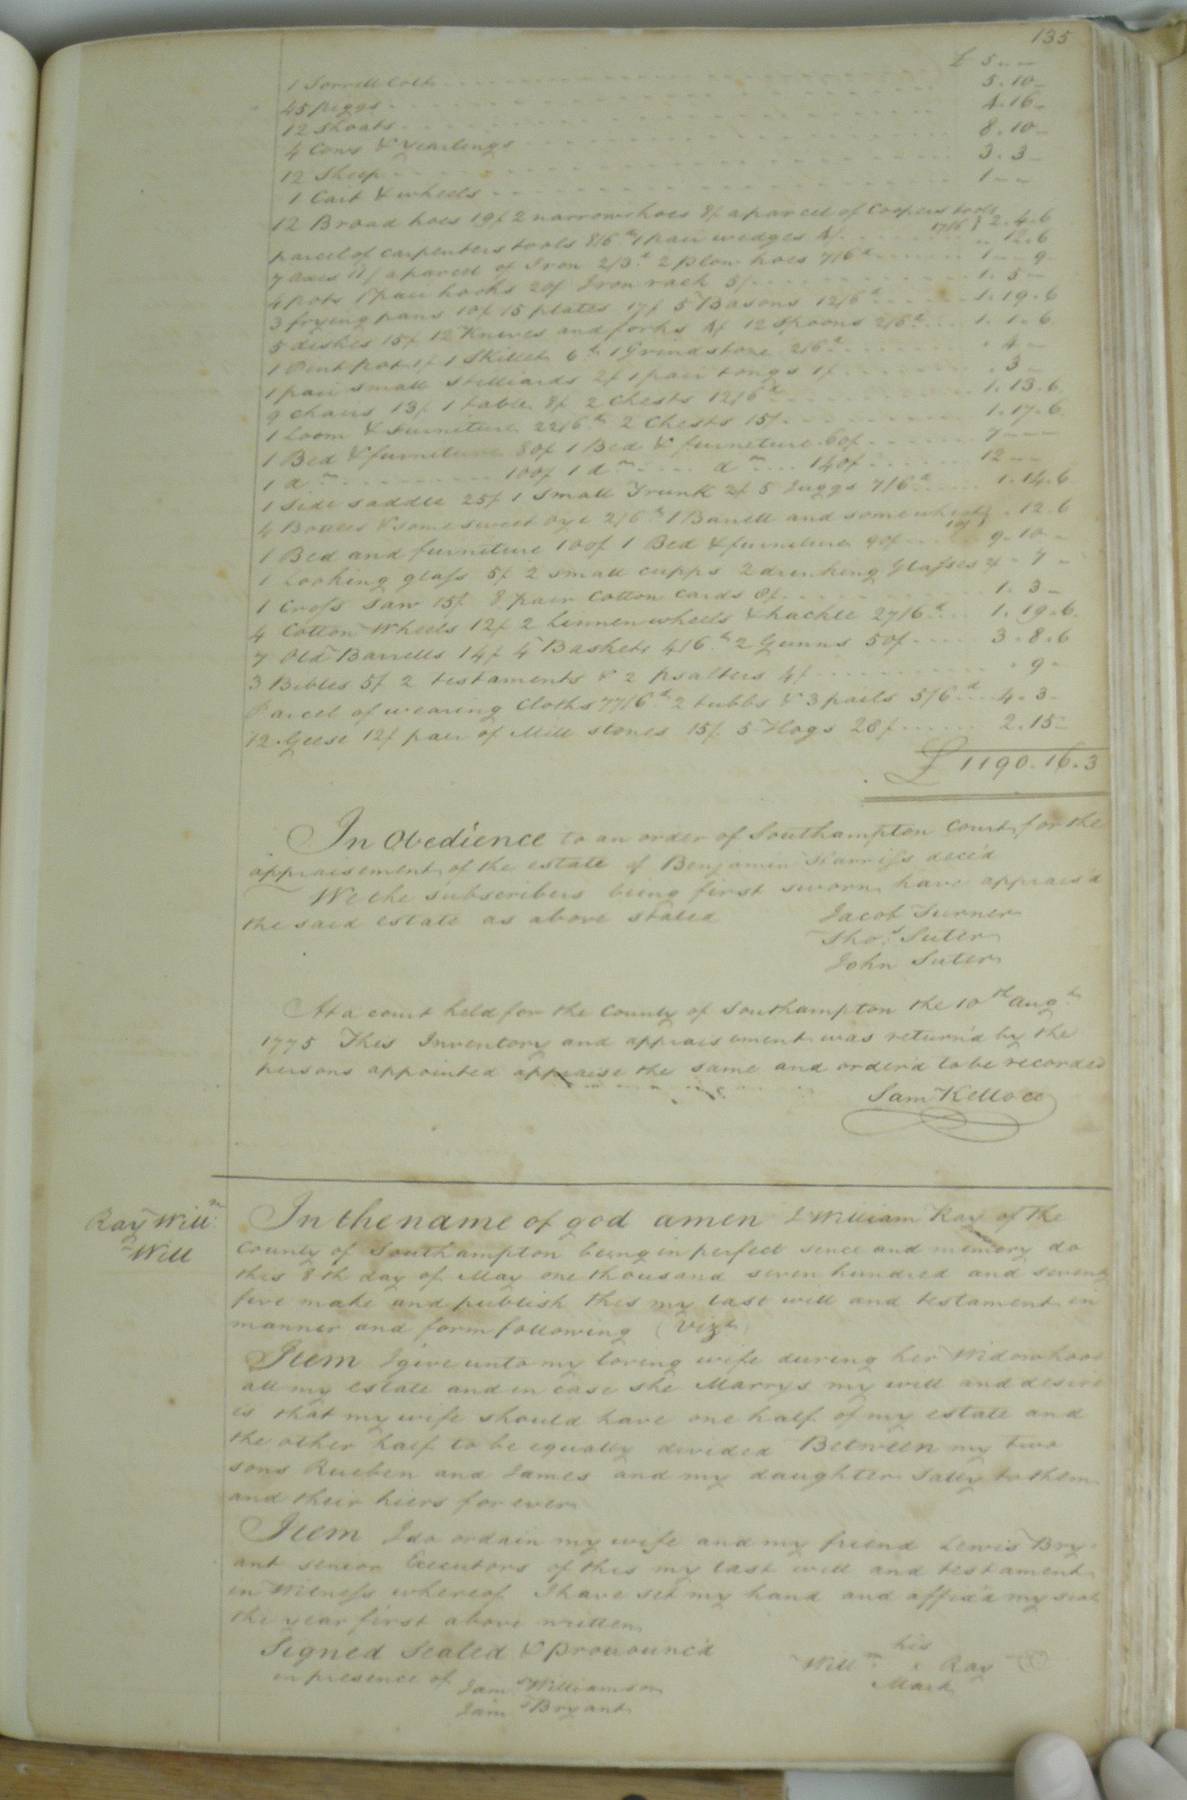 135
1 Sorrell Colt £ 5 - -
45 piggs 5. 10 -
12 Shoats 4. 16 -
4 Cows & yearlings 8. 10 -
12 Sheep 3. 3 -
1 Cart & wheels 1 - -
12 Broad hoes 19/ 2 narrow hoes 8/ a parcel of Coopers tools 17/6 } 2. 4. 6
parcel of carpenters tools 8/6d 1 pair wedges 4/ .. 12. 6
7 axes a parcel of Iron 2/3d 2 plow hoes 7/6d 1 - 9 -
4 pots 1 pair hooks 20/ Iron rack 5/ 1. 5 -
3 frying pans 10/ 15 plates 17/ 5 Basons 12/6d 1. 19. 6
5 dishes 15/ 12 Knives and forks 4/ 12 Spoons 2/6d 1. 1. 6
1 Pint Pot 1/ 1 Skillet 6d 1 Grindstone 2/6d . 4 -
1 pair small stilliards 2/ 1 pair tongs 1/ . 3 -
9 Chairs 13/ 1 table 8/ 2 Chests 12/6d 1. 13. 6
1 Loom & furniture 22/6d 2 Chests 15/ 1. 17. 6
1 Bed & furniture 80/ 1 Bed & furneture 60/ 7 - - -
1 dm 100/ 1 dm dm 140/ 12 - -
1 Side saddle 25/ 1 small Trunk 2/ 5 Juggs 7/6d 1. 14. 6
4 Bottles & some sweet oyl 2/6d 1 Barrell and some wheat 10/ } . 12. 6
1 Bed and furniture 100/ 1 Bed & furniture 90/ 9. 10 -
1 Looking glass 5/ 2 small cupps 2 drinking Glasses 2/ - 7 -
1 Cross Saw 15/ 8 pair Cotton cards 8/ 1. 3 -
4 Cotton Wheels 12/ 2 Linnen wheels & hackle 27/6d 1. 19. 6
7 Old Barrells 14/ 4 Baskets 4/6d 2 Gunns 50/ 3. 8. 6
3 Bibles 5/ 2 testaments & 2 psalters 4/ . 9 -
Parcel of wearing Cloths 77/6d 2 tubbs & 3 pails 5/6d 4. 3 -
12 Geese 12/ pair of Mill stones 15/ 5 Hogs 28/ 2. 15 -
£ 1190. 16. 3
In Obedience to an order of Southampton Court for the
appraisement of the estate of Benjamin Harriss dece'd
We the Subscribers being first sworn have apprais'd
the said estate as above stated
Jacob Turner
Thos. Suter
John Suter
At a court held for the County of Southampton the 10th Augt
1775 This Inventory and appraisement was return'd by the
persons appointed appraise the same and order'd to be recorded
Sam Kelloce
Ray Willm
's Will
In the name of god amen I William Ray of the
County of Southampton being in perfect sence and memory do
this 8th day of May one thousand seven hundred and seventy
five make and publish this my last will and testament in
manner and form following (Vizt)
Item I give unto my loving wife during her Widowhood
all my estate and in case she Marrys my will and desire
is that my wife should have one half of my estate and
the other half to be equally devided Between my two
sons Rueben and James and my daughter Sally to them
and their hiers for ever
Item I do ordain my wife and my friend Lewis Bry-
ant senior Executors of this my last will and testament
in Witness whereof I have set my hand and affix'd my seal
the year first above written
Signed Sealed & pronounc'd
in presence of
Jams Williamson
Jams Bryant
his
Willm Ray
Mark